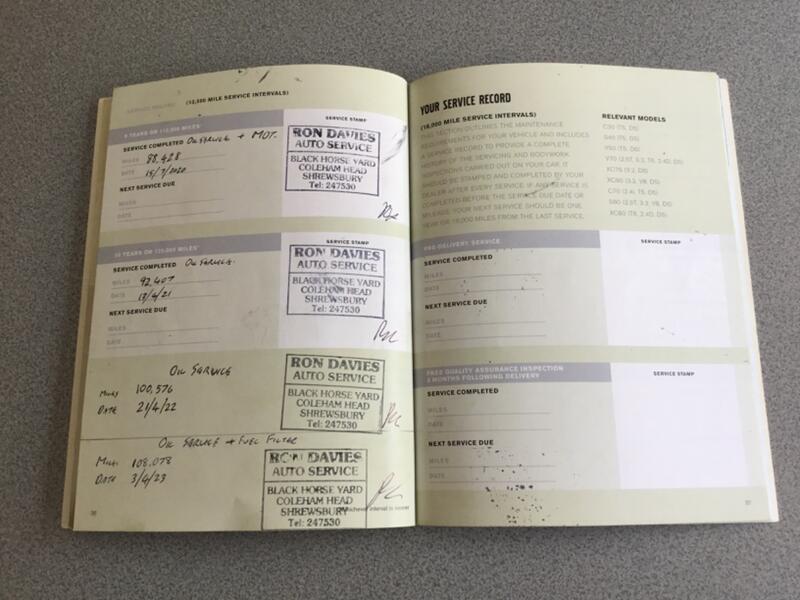 SERVICE RECORD (12,000 MILE SERVICE INTERVALS)
SERVICE STAMP
SERVICE COMPLETED OIL SERVICE + MOT.
MILES 88,428
DATE 15/7/2020
NEXT SERVICE DUE
MILES
DATE
RON DAVIES
AUTO SERVICE
BLACK HORSE YARD
COLEHAM HEAD
SHREWSBURY
Tel: 247530
SERVICE STAMP
SERVICE COMPLETED OIL SERVICE.
MILES 92,407
DATE 13/4/21
NEXT SERVICE DUE
MILES
DATE
RON DAVIES
AUTO SERVICE
BLACK HORSE YARD
COLEHAM HEAD
SHREWSBURY
Tel: 247530
OIL SERVICE
MILES 100,576
DATE 21/4/22
RON DAVIES
AUTO SERVICE
BLACK HORSE YARD
COLEHAM HEAD
SHREWSBURY
Tel: 247530
OIL SERVICE + FUEL FILTER
MILES 108,078
DATE 3/4/23
RON DAVIES
AUTO SERVICE
BLACK HORSE YARD
COLEHAM HEAD
SHREWSBURY
Tel: 247530
whichever interval is sooner
YOUR SERVICE RECORD
(18,000 MILE SERVICE INTERVALS)
THIS SECTION OUTLINES THE MAINTENANCE
REQUIREMENTS FOR YOUR VEHICLE AND INCLUDES
A SERVICE RECORD TO PROVIDE A COMPLETE
HISTORY OF THE SERVICING AND BODYWORK
INSPECTIONS CARRIED OUT ON YOUR CAR. IT
SHOULD BE STAMPED AND COMPLETED BY YOUR
DEALER AFTER EVERY SERVICE. IF ANY SERVICE IS
COMPLETED BEFORE THE SERVICE DUE DATE OR
MILEAGE, YOUR NEXT SERVICE SHOULD BE ONE
YEAR OR 18,000 MILES FROM THE LAST SERVICE.
RELEVANT MODELS
C30 (T5, D5)
S40 (T5, D5)
V50 (T5, D5)
XC70 (3.2, D5)
XC90 (3.2, V8, D5)
C70 (2.4i, T5, D5)
PRE-DELIVERY SERVICE
SERVICE STAMP
SERVICE COMPLETED
MILES
DATE
NEXT SERVICE DUE
MILES
DATE
FREE QUALITY ASSURANCE INSPECTION
3 MONTHS FOLLOWING DELIVERY
SERVICE STAMP
SERVICE COMPLETED
MILES
DATE
NEXT SERVICE DUE
MILES
DATE